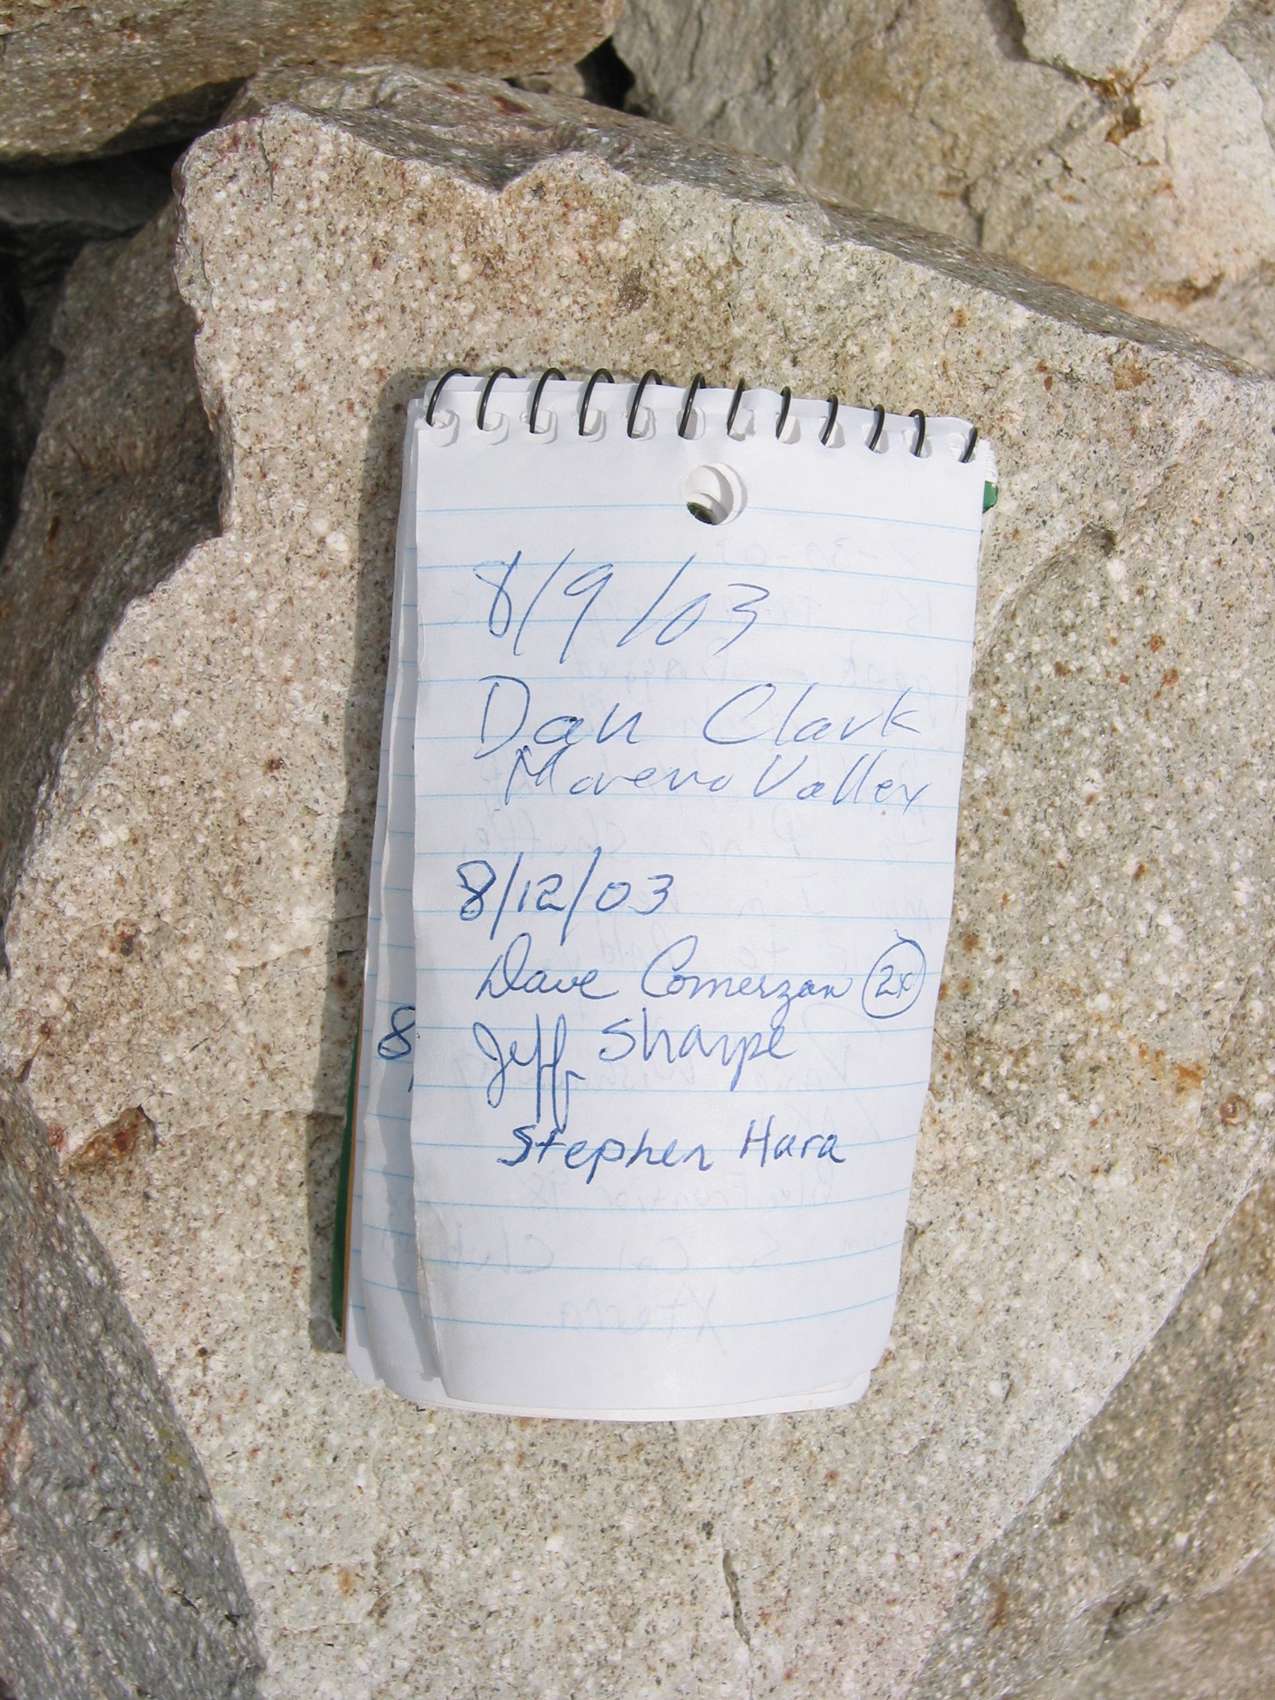 8/9/03
Dan Clark
Moreno Valley
8/12/03
Dave Comerzan 2x
Jeff Sharpe
Stephen Hara
8